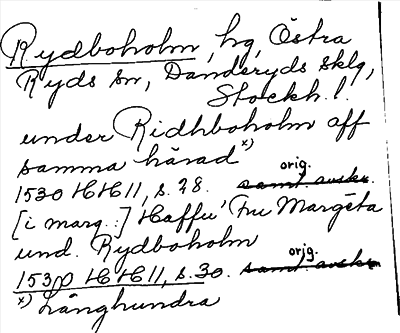 Rydboholm, hg, Östra
Ryds sn, Danderyds sklg,
Stockh. l.
under Ridhboholm aff
samma härad x)
orig.
1530 HH 11, s. 28. samt avskr.
[i marg.:] Haffu' Fru Margēta
und. Rydboholm
orig.
1530 HH 11, s. 30. samt avskr.
x) Långhundra